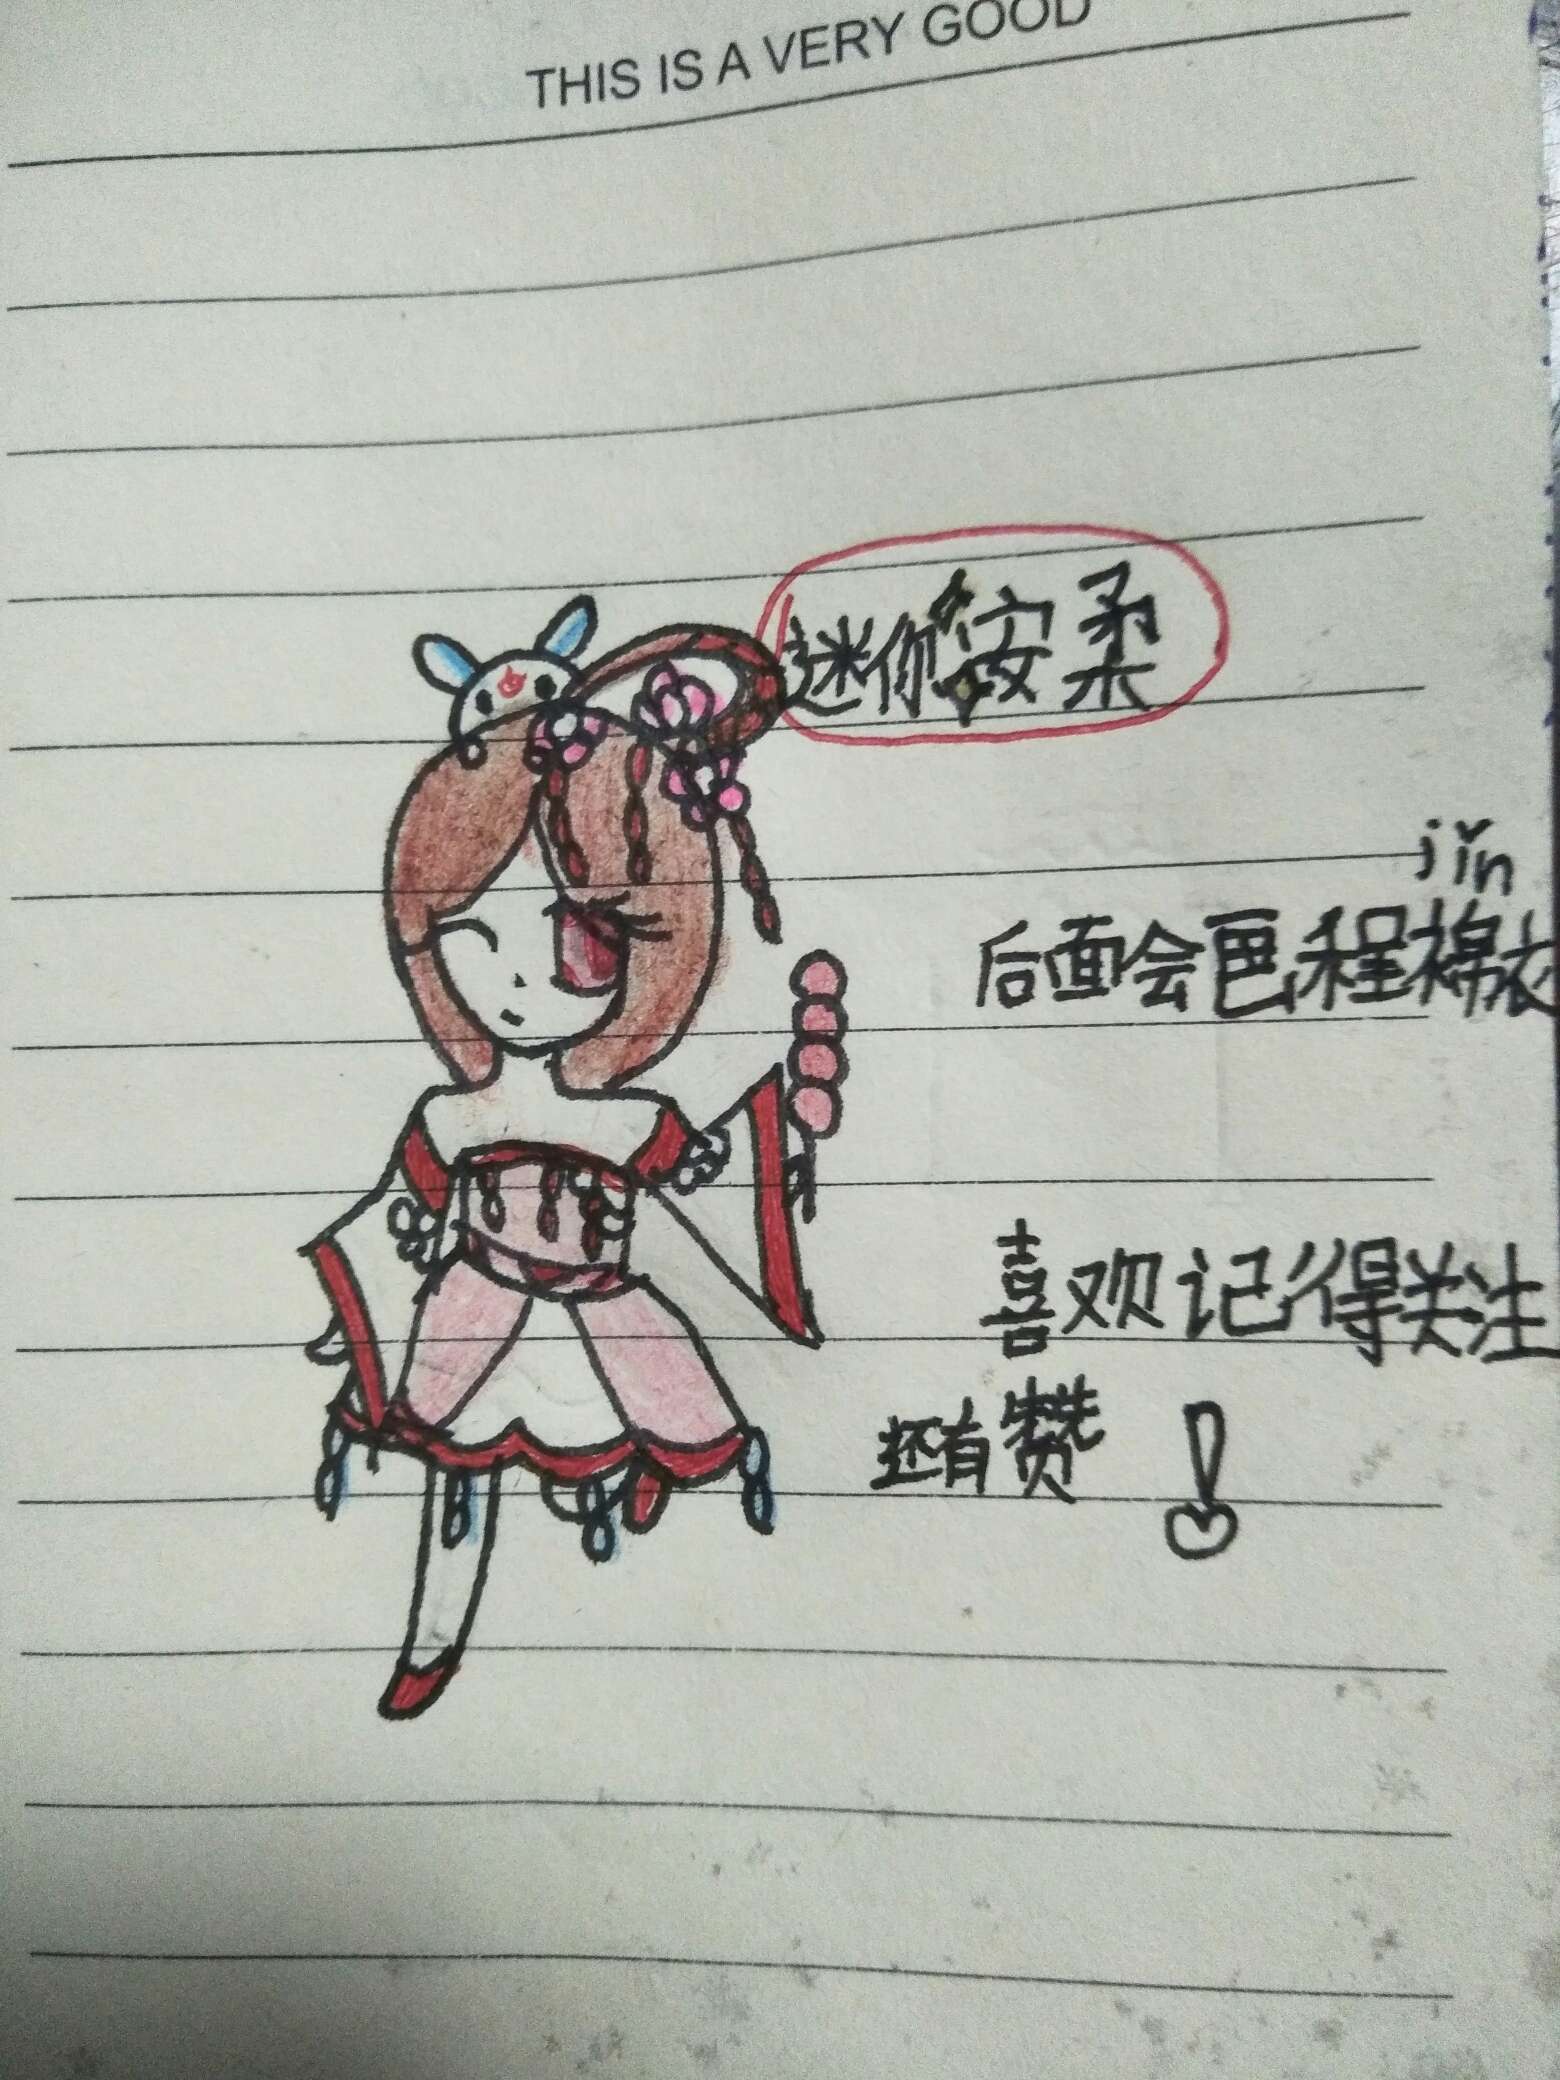 THIS IS A VERY GOOD
迷你安柔
jǐn
后面会画程棉衣
喜欢记得关注
还有赞！